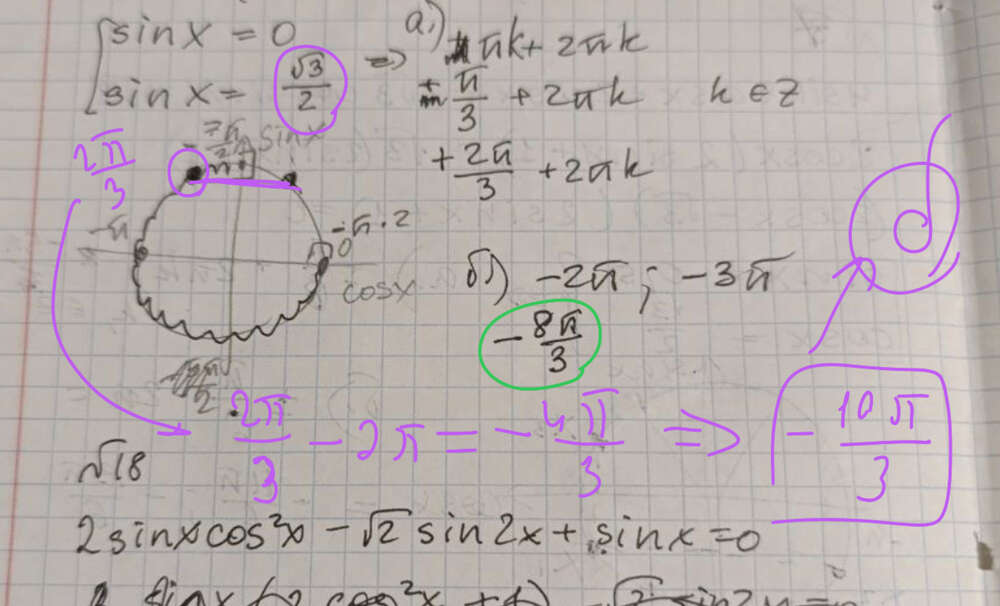 sinx = 0
sinx = √3/2 => а.) πk + 2πk
π/3 + 2πk k ∈ Z
+ 2π/3 + 2πk
2π/3
sinx
-π
-π·2
0
cosx
б.) -2π ; -3π
-8π/3
2π/3 - 2π = -4π/3 => -10π/3
√18
2sinxcos²x - √2 sin2x + sinx = 0